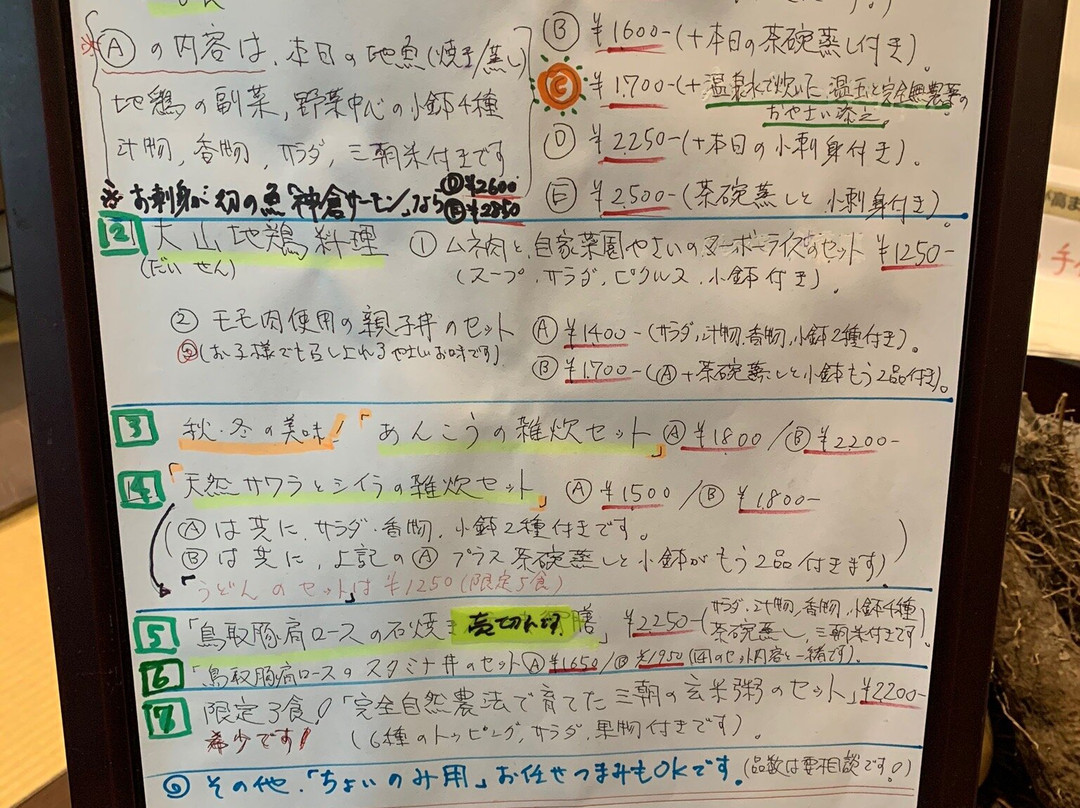 Ⓐの内容は、本日の地魚(焼き/蒸し)
地鶏の副菜、野菜中心の小鉢4種
汁物、香物、サラダ、三朝米付きです
※お刺身が幻の魚「神倉サーモン」なら Ⓓ¥2600 Ⓔ¥2850
Ⓑ ¥1600-(+本日の茶碗蒸し付き)。
Ⓒ ¥1.700-(+温泉水で炊いた温玉と完全無農薬の
おやさい添え)。
Ⓓ ¥2.250-(+本日の小刺身付き)。
Ⓔ ¥2.500-(茶碗蒸しと小刺身付き)
2 大山地鶏料理
(だいせん)
① ムネ肉と自家菜園やさいのマーボーライスのセット ¥1250-
(スープ、サラダ、ピクルス、小鉢付き)。
② モモ肉使用の親子丼のセット Ⓐ ¥1400-(サラダ、汁物、香物、小鉢2種付き)。
(お子様でも召し上れるやさしいお味です) Ⓑ ¥1.700-(Ⓐ+茶碗蒸しと小鉢もう2品付き)。
3 秋・冬の美味!「あんこうの雑炊セット」Ⓐ ¥1800/Ⓑ ¥2.200-
4 「天然サワラとシイラの雑炊セット」 Ⓐ ¥1500/Ⓑ ¥1.800-
(Ⓐは共に、サラダ・香物、小鉢2種付きです。
Ⓑは共に、上記のⒶプラス茶碗蒸しと小鉢がもう2品付きます)
「うどんのセット」は¥1250(限定5食)
5 「鳥取豚肩ロースの石焼き 売切れです 膳」 ¥2.250-(サラダ、汁物、香物、小鉢4種
茶碗蒸し、三朝米付きです)
6 「鳥取豚肩ロースのスタミナ丼のセット Ⓐ ¥1650/Ⓑ ¥1950(4のセット内容と一緒です)。
7 限定3食!「完全自然農法で育てた三朝の玄米粥のセット」¥2200-
希少です! (6種のトッピング、サラダ、果物付きです)。
◎その他、「ちょいのみ用」お任せつまみもOKです。(品数は要相談です!)